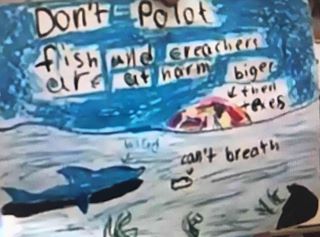 Don't Polot
fish and creachers
are at harm
biger
then
can't breath